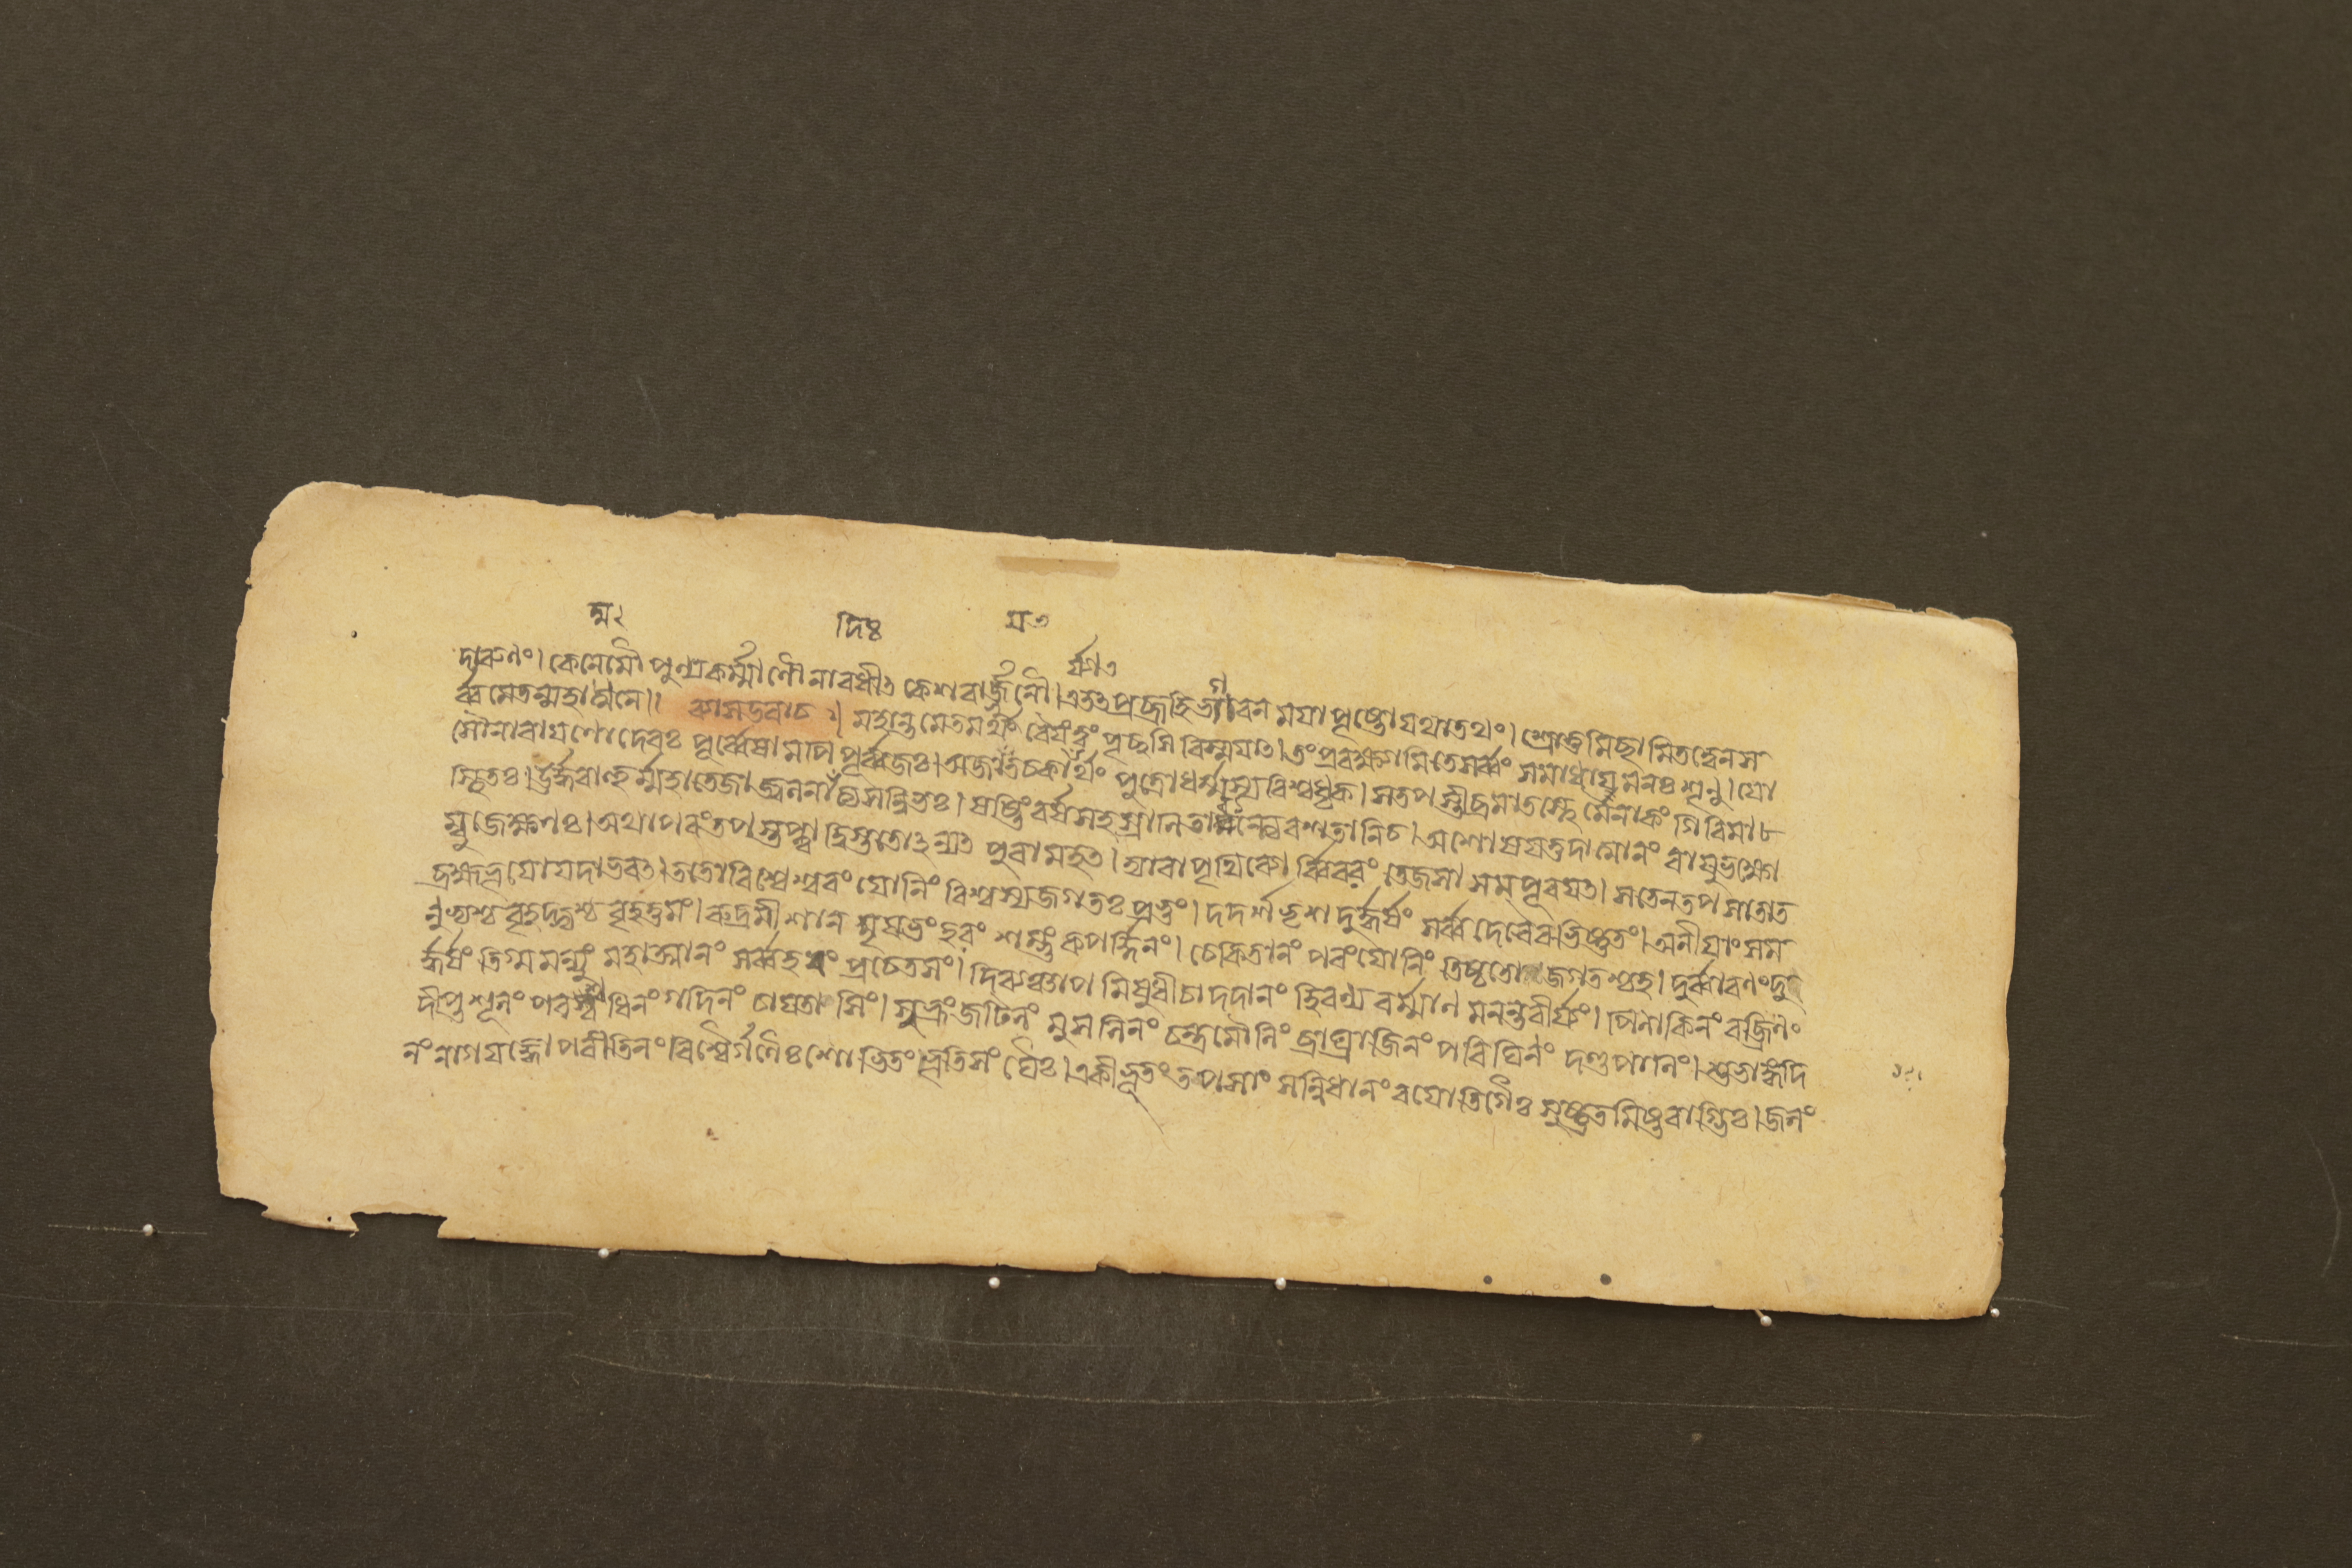 त्म২
দিঃ
मৎ
র্য্যাৎ
দাৰুণং। কেনেমৌ পুণ্যকর্ম্মাণৌ নাবধীৎ কেশবার্জুনৌ। এতৎপ্রব্রূহি ভগবন ময়া পৃষ্টো যথাতথং। শ্রোতুমিছামি তত্বেন স
র্ব্বমেতন্মহামুনে॥ ব্যাসউবাচ॥ মহান্তমেতমর্থং বৈ যং ত্বং পৃচ্ছসি বিস্ময়াৎ। তং প্রবক্ষ্যামি তে সর্ব্বং সমাধায় মনঃ শৃণু। যো
সৌ নাৰায়ণো দেবঃ পূর্ব্বেষামপি পূর্ব্বজঃ। অজায়ত চ কার্যার্থং পুত্রো ধর্ম্মস্য বিশ্বধৃক। স তপস্তীব্রমাতস্থে মৈনাকং গিৰিমা
স্থিতঃ। ঊর্দ্ধবাহুর্ম্মহাতেজা জ্বলনাদিত্যসন্নিভঃ। ষষ্টিং বর্ষসহস্রাণি তাবন্ত্যেব শতানি চ। অশোষয়ত্তদাত্মানং বায়ুভক্ষো
ম্বুজেক্ষণঃ। অথাপৰং তপস্তপ্ত্বা দ্বিস্ততোঽন্যৎ পুৰামহৎ। দ্যাবাপৃথিব্যোর্ব্বিবৰং তেজসা সমপূৰয়ৎ। স তেন তপসা তাত
ব্রহ্মভূতো যদাভবৎ। ততো বিশ্বেশ্বৰং যোনিং বিশ্বস্য জগতঃ প্রভুং। দদর্শ ভৃশদুর্দ্ধর্ষং সর্ব্বদেবৈৰভিষ্টুতং। অণীয়াংসম
ণুভ্যশ্চ বৃহদ্ভ্যশ্চ বৃহত্তমং। ৰুদ্রমীশানমৃষভং হৰং শম্ভুং কপর্দ্দিনং। চেকিতানং পৰং যোনিং তিষ্ঠতো জগতশ্চহ। দুর্ব্বাৰণং দু
র্দ্ধর্ষং তিগ্মমন্যুং মহাত্মানং সর্ব্বহৰং প্রচেতসং। দিব্যঞ্চাপমিষুধী চাদদানং হিৰণ্যবর্ম্মাণমনন্তবীর্য্যং। পিনাকিনং বজ্রিণং
দীপ্তশূলং পৰশ্বধিনং গদিনং চায়তাসিং। সুভ্রুং জটিলং মুসলিনং চন্দ্রমৌলিং ব্যাঘ্রাজিনং পৰিঘিণং দণ্ডপাণিং। শুভাঙ্গদি
নং নাগযজ্ঞোপবীতিনং বিশ্বৈর্গণৈঃ শোভিতং ভূতসংঘৈঃ। একীভূতং তপসাং সন্নিধানং বয়োতিগৈঃ সুষ্টুতমিষ্টবাগ্ভিঃ। জলং